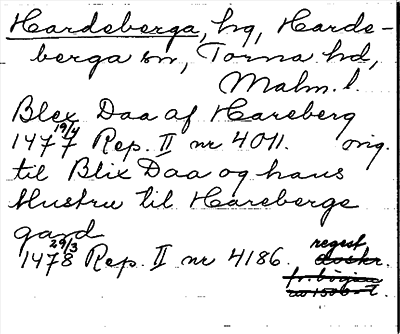 Hardeberga, hg, Harde-
berga sn, Torna hd,
Malm. l.
Blex Daa af Hareberg
1477 19/4 Rep. II nr 4011. orig.
til Blix Daa og hans
Hustru til Harebergs
gard
1478 29/3 Rep. II nr 4186. regest
avskr.
fr. början
av 1500-t.